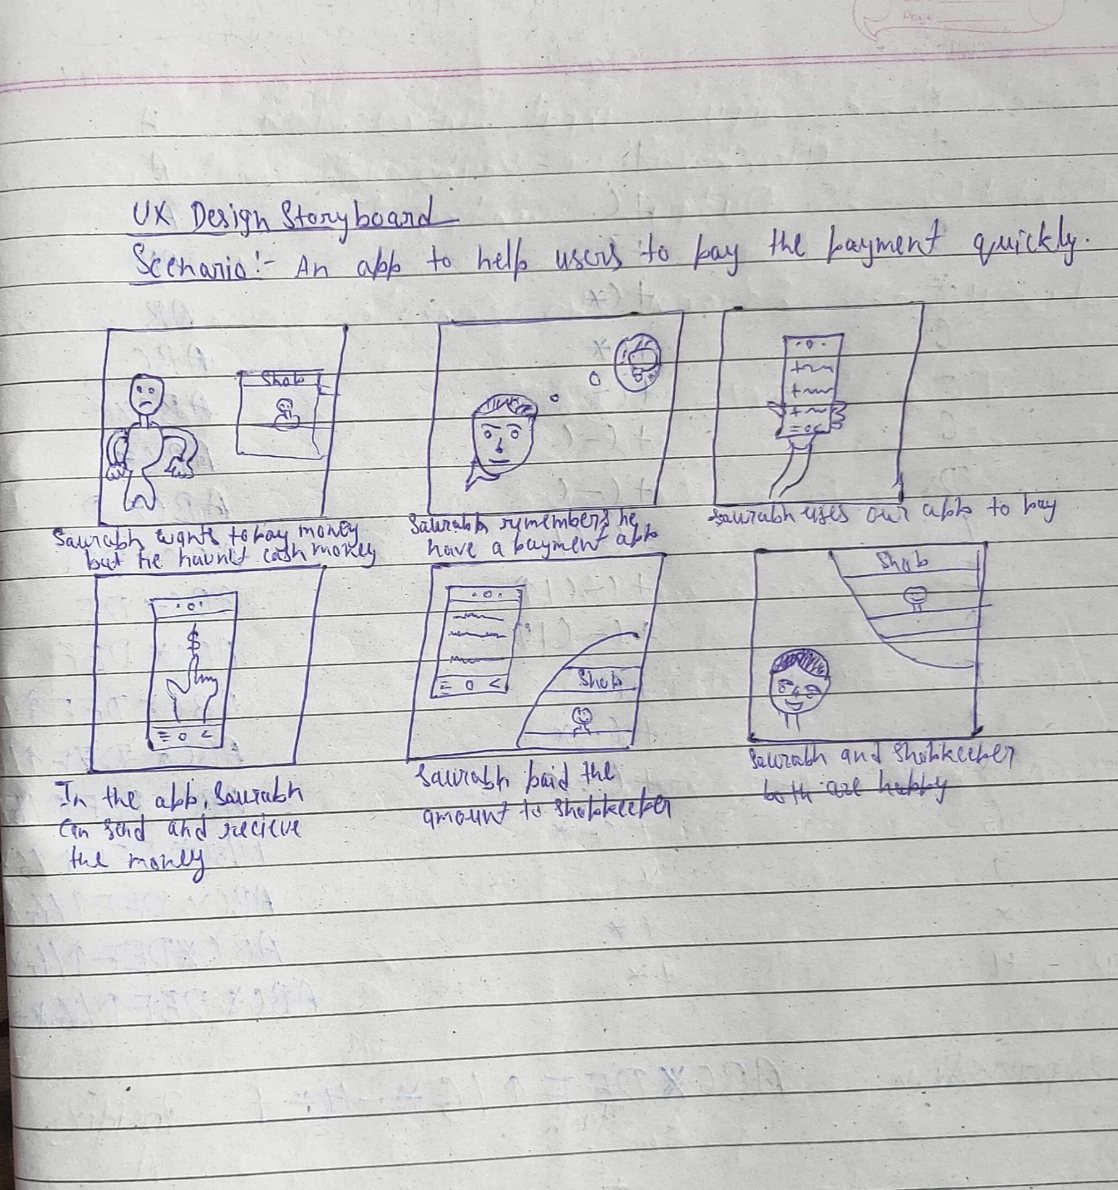 Page:
UX Design Storyboard
Scenario:- An app to help users to pay the payment quickly.
Shop
Saurabh wants to pay money
but he havn't cash money
Saurabh remembers he
have a payment app
Saurabh uses our app to pay
$
In the app, Saurabh
can send and recieve
the money
Shop
Saurabh paid the
amount to shopkeeper
Shop
Saurabh and Shopkeeper
both are happy